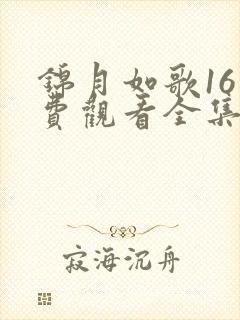 錦月如歌16
費觀看全集
寂海沉舟